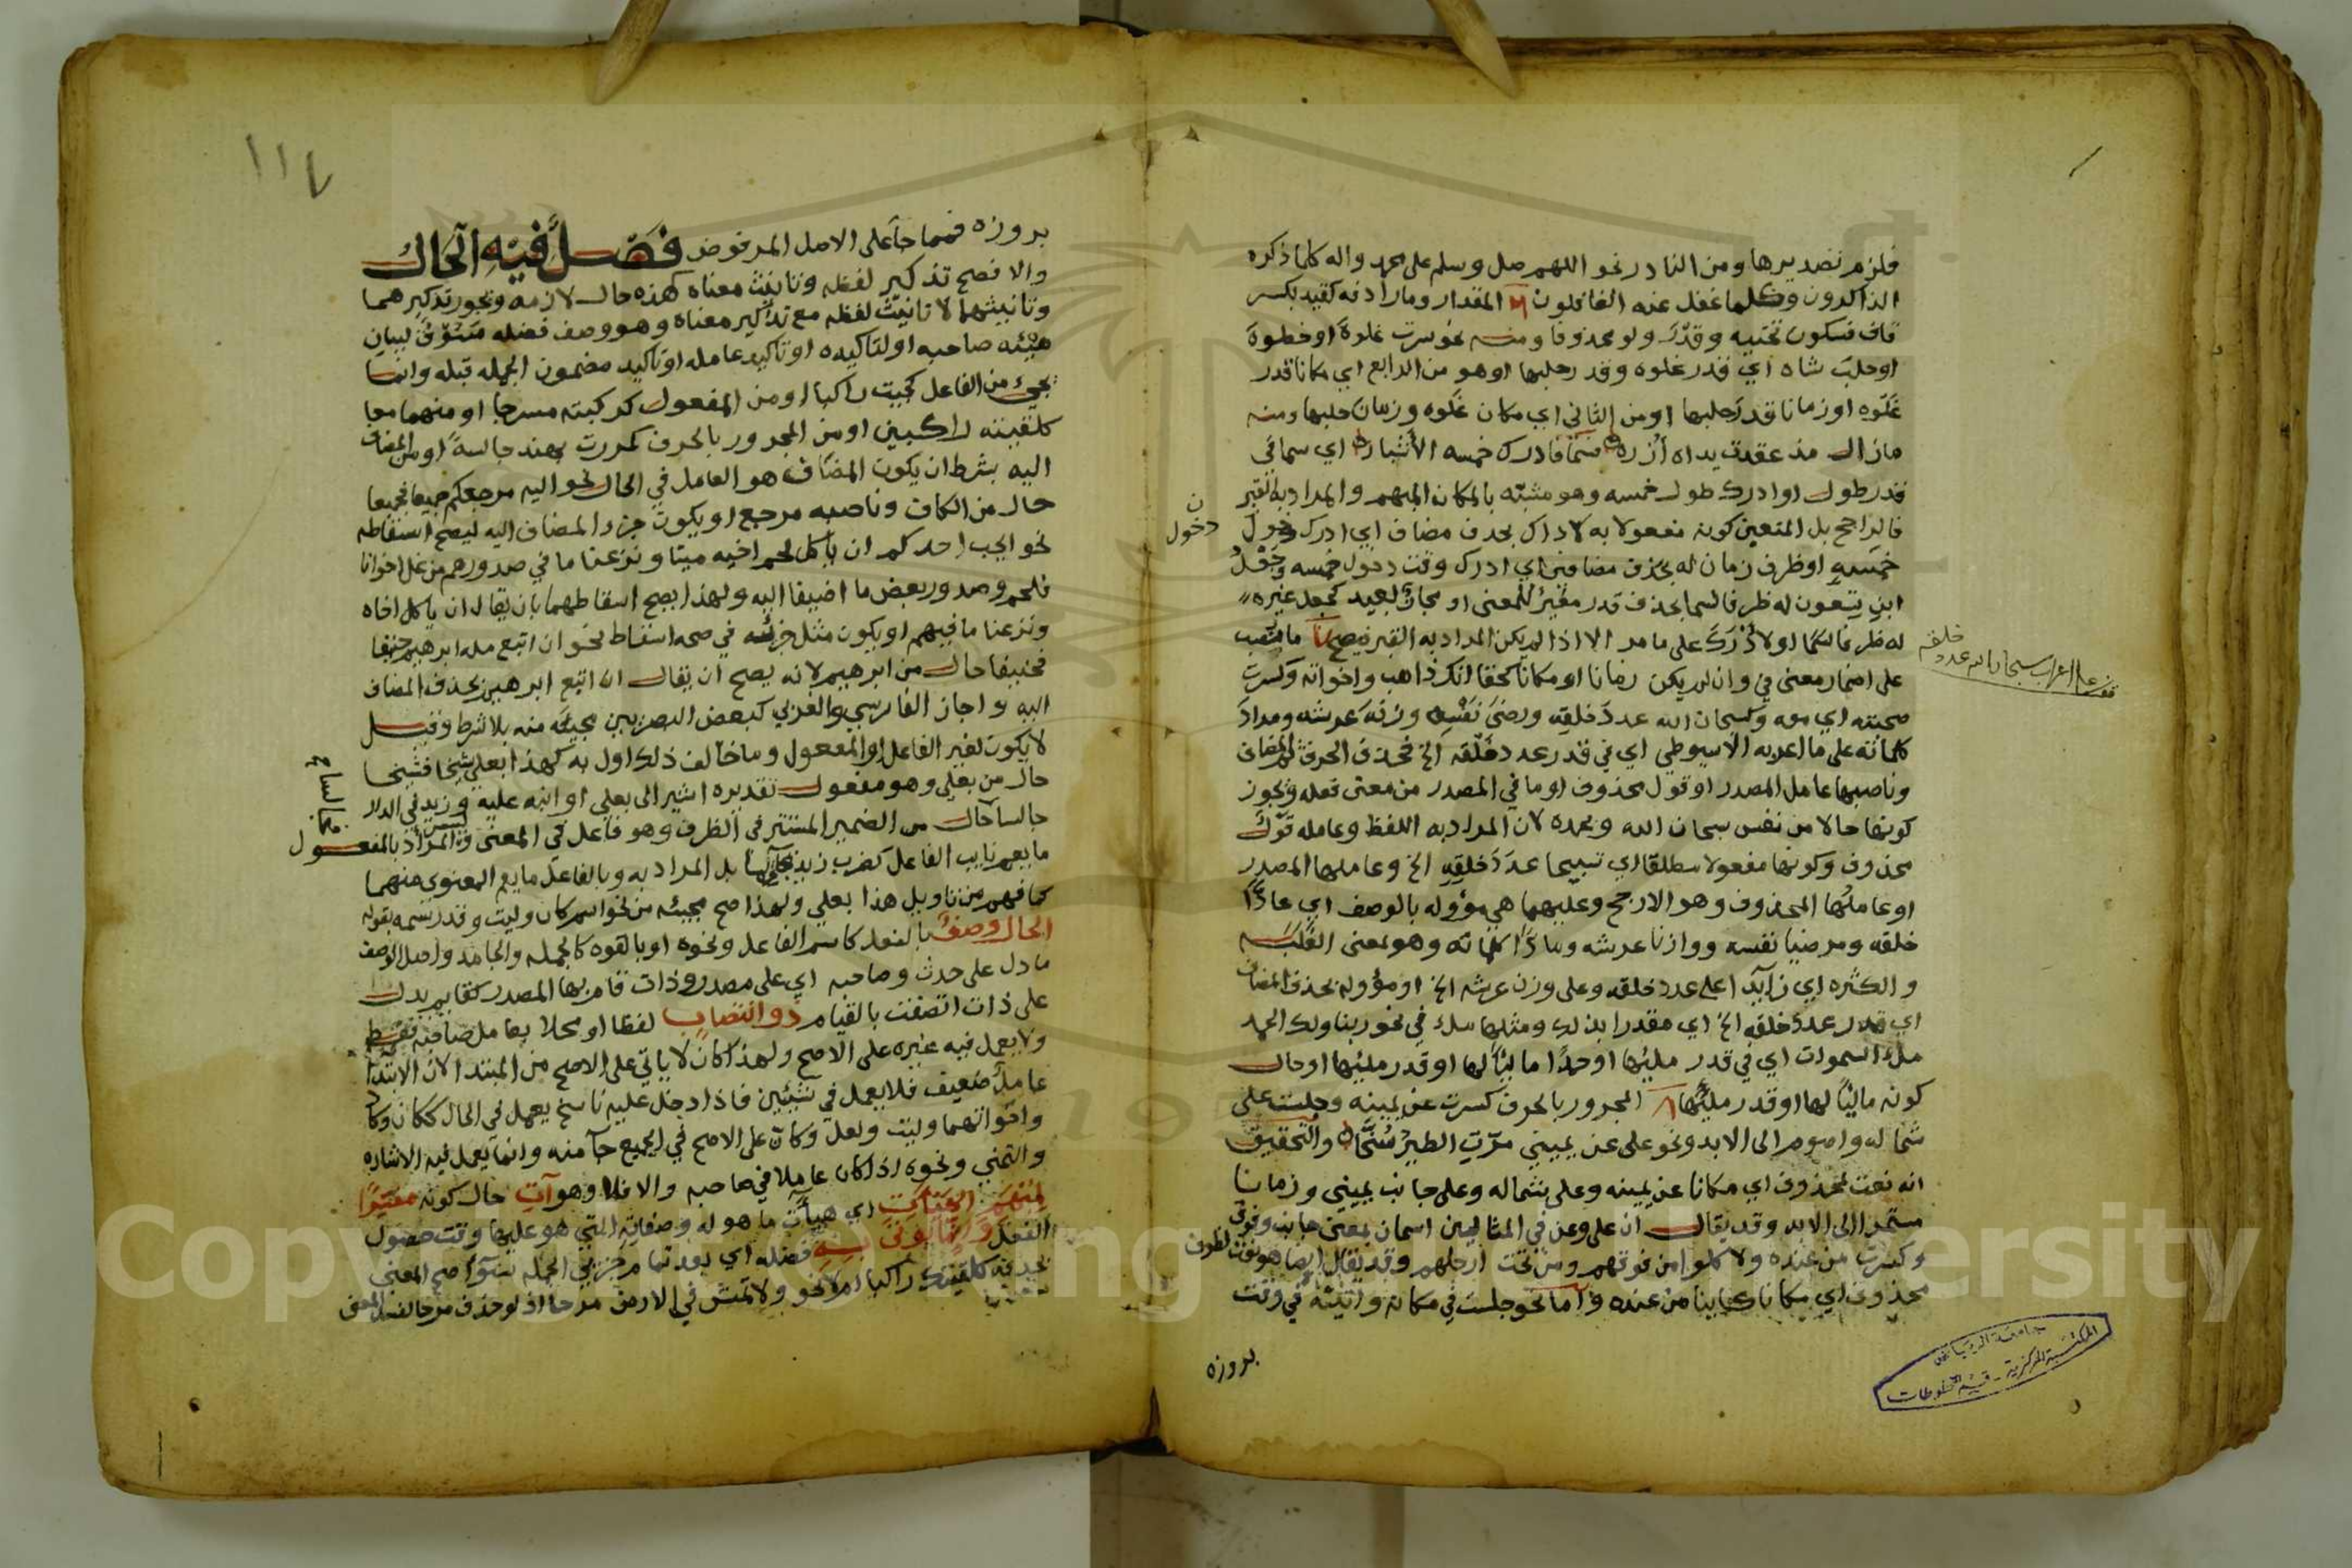 فلزم تصديرها ومن النادر نحو اللهم صل وسلم على محمد واله كلما ذكره
الذاكرون وكلما غفل عنه الغافلون المقدار وما رادفه كقيد بكسر
قاف فسكون تحتيه وقدر ولو محذوفا ومنه نحو سرت غلوة او خطوة
او حلب شاه اي قدر غلوه وقدر حلبها او هو من الرابع اي مكانا قدر
غلوه او زمانا قدر حلبها او من الثاني اي مكان غلوه وزمان حلبها ومنه
مازال مذ عقدت يداه ازره فسما فادرك خمسه الاشبار اي سما في
قدر طول او ادرك طول خمسه وهو مشبه بالمكان المبهم والمراد به القبر
فالراجح بل المتعين كونه مفعولا به لادرك بحذف مضاف اي ادرك دخول
خمسه او ظرف زمان له بحذف مضافين اي ادرك وقت دخول خمسه وجعل
ابن يسعون له ظرفا لسما بحذف قدر مغير للمعنى او مجاز بعيد كجعل غيره
له ظرفا لسما او لادرك على ما مر الا اذا لم يكن المراد به القبر فيصح ما نصب
على اضمار معنى في وان لم يكن زمانا او مكانا كحقا انك ذاهب واخواته وكسرت
صحبته اي معه وكسبحان الله عدد خلقه ورضى نفسه وزنة عرشه ومداد
كلماته على ما اعربه الاسيوطي اي في قدر عدد خلقه الخ فحذف الحرف ثم المضاف
وناصبها عامل المصدر او قول محذوف او ما في المصدر من معنى فعله ويجوز
كونها حالا من نفس سبحان الله وبحمده لان المراد به اللفظ وعامله قول
محذوف وكونها مفعولا مطلقا اي تسبيحا عدد خلقه الخ وعاملها المصدر
او عاملها المحذوف وهو الارجح وعليهما هي مؤوله بالوصف اي عادا
خلقه ومرضيا نفسه ووازنا عرشه ومادا كلماته وهو بمعنى الغلبه
والكثره اي زايدا على عدد خلقه وعلى وزن عرشه الخ او مؤوله بحذف المضاف
اي قدر عدد خلقه الخ اي مقدرا بذلك ومثلها ملء في نحو ربنا ولك الحمد
ملء السموات اي في قدر مليها او حمدا مالئا لها او قدر مليها او حال
كونه مالئا لها او قدر مليها المجرور بالحرف كسرت عن يمينه وجلست على
شماله واصوم الى الابد ونحو على عن يميني مرت الطير سنحا والتحقيق
انه نعت لمحذوف اي مكانا عن يمينه وعلى شماله وعلى جانب يميني وزمانا
مستمرا الى الابد وقد يقال ان على وعن في المثالين اسمان بمعنى جانب وفوق
وكسرت من عنده ولاكلوا من فوقهم ومن تحت ارجلهم وقد يقال ايضا هو نعت لظرف
محذوف اي مكانا كاينا من عنده واما نحو جلست في مكانه واتيته في وقت
بروزه
ن
دخول
جامعة الرياض
المكتبة المركزية - قسم المخطوطات
١١٧
بروزه فمما جا على الاصل المرفوض فصل فيه الحال
والافصح تذكير لفظه وتانيث معناه كهذه حال لازمه ويجوز تذكيرهما
وتانيثهما لا تانيث لفظه مع تذكير معناه وهو وصف فضله مسوق لبيان
هيئه صاحبه او لتاكيده او تاكيد عامله او تاكيد مضمون الجمله قبله وانما
يجيء من الفاعل كجيت راكبا او من المفعول كركبته مسرجا او منهما معا
كلقيته راكبين او من المجرور بالحرف كمررت بهند جالسة او من المضاف
اليه بشرط ان يكون المضاف هو العامل في الحال نحو اليه مرجعكم جميعا فجميعا
حال من الكاف وناصبه مرجع او يكون جزء المضاف اليه ليصح اسقاطه
نحو ايحب احدكم ان ياكل لحم اخيه ميتا ونزعنا ما في صدورهم من غل اخوانا
فلحم وصدور بعض ما اضيفا اليه ولهذا يصح اسقاطهما بان يقال ان ياكل اخاه
ونزعنا ما فيهم او يكون مثل جزئه في صحه اسقاط نحو ان اتبع مله ابرهيم حنيفا
فحنيفا حال من ابرهيم لانه يصح ان يقال ان اتبع ابرهيم بحذف المضاف
اليه واجاز الفارسي والعزي كبعض البصريين مجيئه منه بلا شرط وقيل
لا يكون لغير الفاعل او المفعول وما خالف ذلك اول به كهذا بعلي شيخا فشيخا
حال من بعلي وهو مفعول تقديره اشير الى بعلي او انبه عليه وزيد في الدار
جالسا حال من الضمير المستتر في الظرف وهو فاعل في المعنى وليس المراد بالمفعول
ما يعم نايب الفاعل كضرب زيد جالسا بل المراد به وبالفاعل ما يعم المعنوي منهما
كما فهم من تاويل هذا بعلي ولهذا صح مجيئه من نحو اسم كان وليت وقد رسمه بقوله
الحال وصف بالفعل كاسم الفاعل ونحوه او بالقوه كالجمله والجامد واصل الوصف
ما دل على حدث وصاحبه اي على مصدر وذات قام بها المصدر كقايم يدل
على ذات اتصفت بالقيام ذو انتصاب لفظا او محلا بعامل صاحبه فقط
ولا يعمل فيه غيره على الاصح ولهذا كان لا ياتي على الاصح من المبتدا لان الابتدا
عامل ضعيف فلا يعمل في شيئين فاذا دخل عليه ناسخ يعمل في الحال ككان وكاد
واخواتهما وليت ولعل وكان على الاصح في الجميع جا منه وانما يعمل فيه الاشاره
والتمني ونحوه اذا كان عاملا في صاحبه والا فلا وهو آت حال كونه مفسرا
لمنبهم الهيآت اي هيآت ما هو له وصفاته التي هو عليها وقت حصول
الفعل وانما يؤتى به فضله اي بعد تمام جزئي الجمله سوا صح المعنى
بحذفه كلقيتك راكبا ام لا نحو ولا تمش في الارض مرحا اذ لو حذف مرحا لفسد المعنى